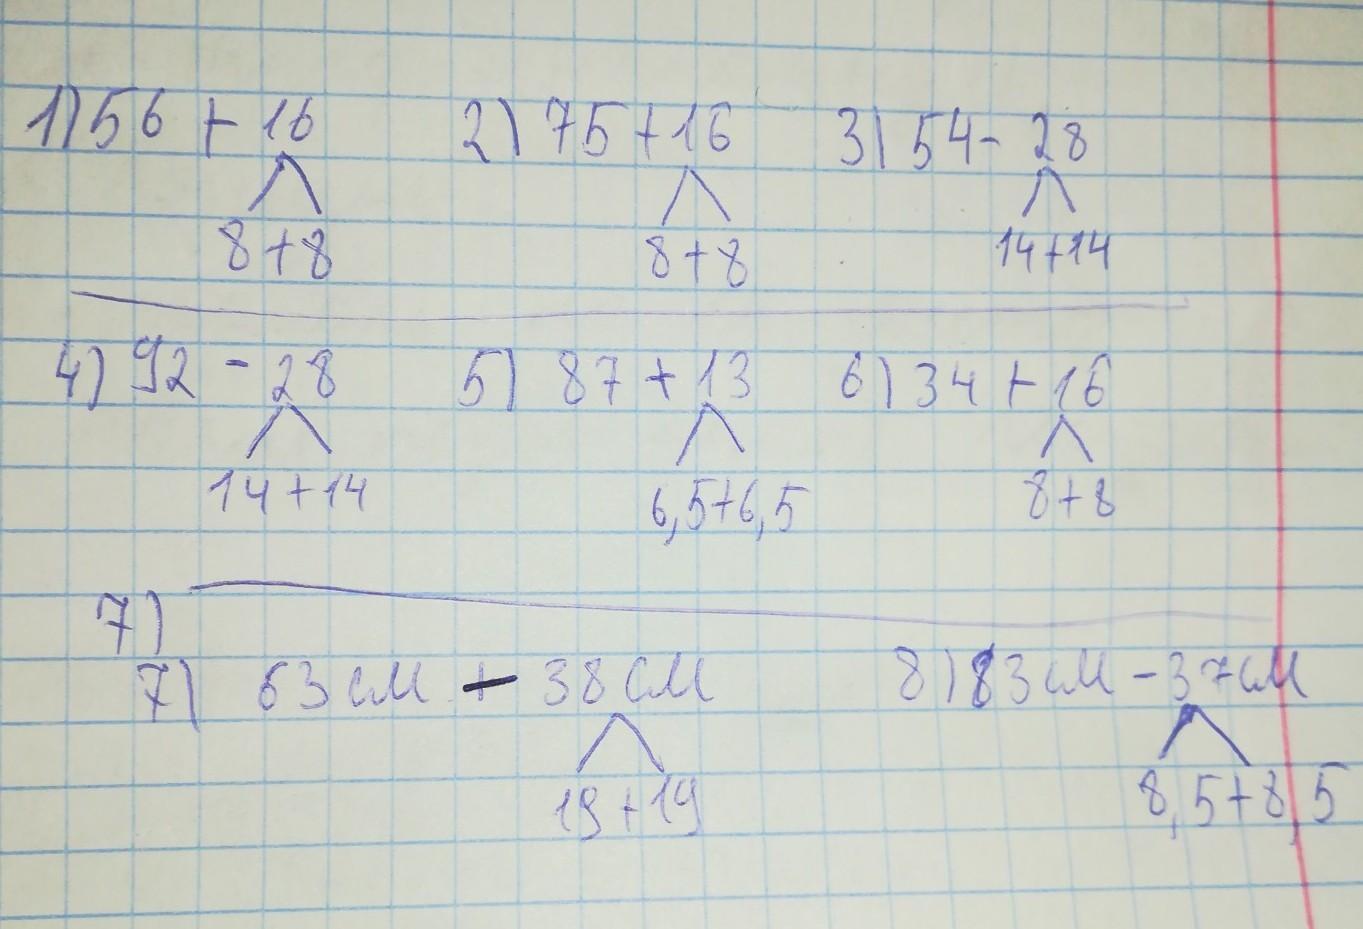 1) 56 + 16 2) 75 + 16 3) 54 - 28
8 + 8 8 + 8 14 + 14
4) 92 - 28 5) 87 + 13 6) 34 + 16
14 + 14 6,5 + 6,5 8 + 8
7)
7) 63 см + 38 см 8) 83 см - 37 см
19 + 19 8,5 + 8,5